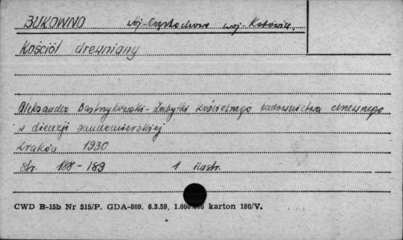 BUKOWNO woj. Częstochowa woj. Katowice.
Kościół drewniany
Aleksander Bastrzykowski - Zabytki kościelnego budownictwa drewnianego
w diecezji sandomierskiej
Kraków 1930
str. 188-189 1 ilustr.
CWD B-15b Nr 515/P. GDA-609. 6.3.59. karton 180/V.